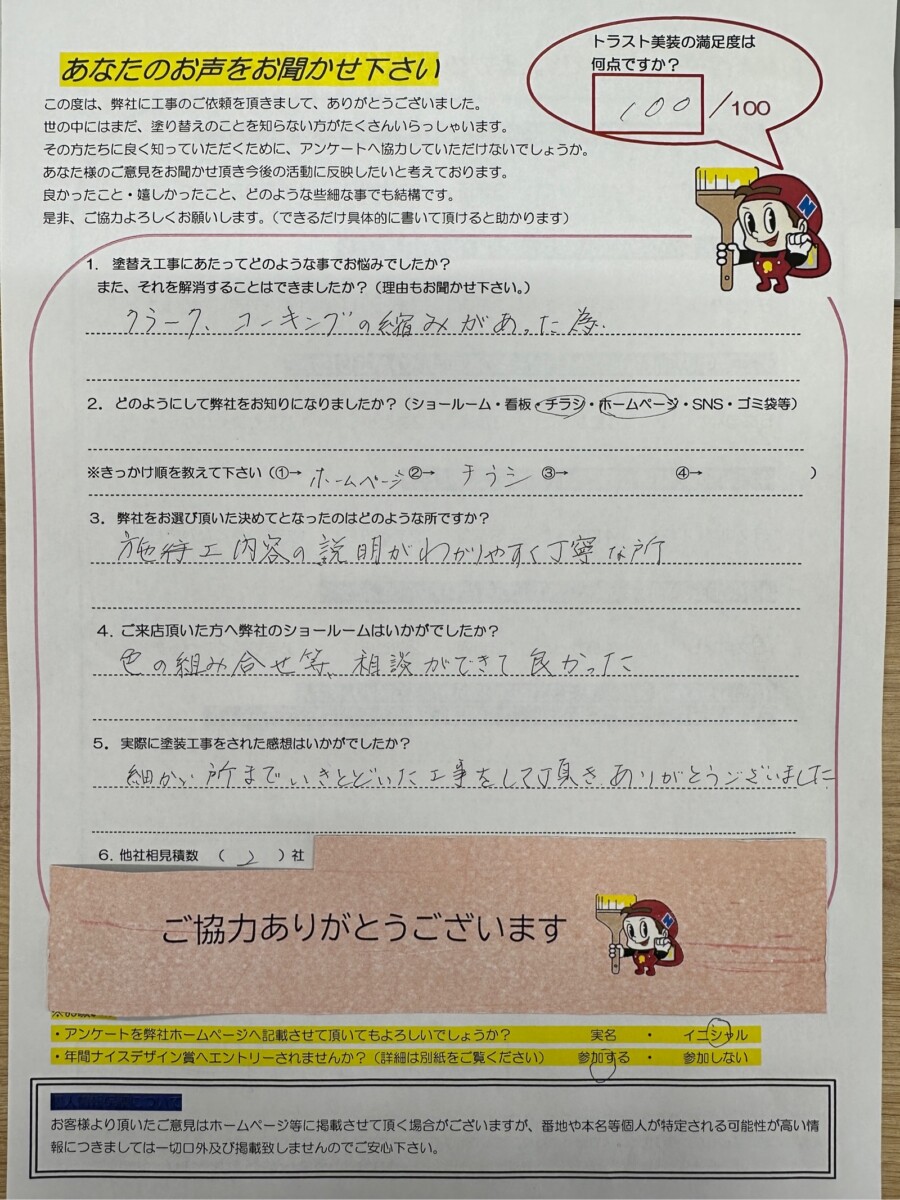 あなたのお声をお聞かせ下さい
トラスト美装の満足度は
何点ですか?
100/100
この度は、弊社に工事のご依頼を頂きまして、ありがとうございました。
世の中にはまだ、塗り替えのことを知らない方がたくさんいらっしゃいます。
その方たちに良く知っていただくために、アンケートへ協力していただけないでしょうか。
あなた様のご意見をお聞かせ頂き今後の活動に反映したいと考えております。
良かったこと・嬉しかったこと、どのような些細な事でも結構です。
是非、ご協力よろしくお願いします。(できるだけ具体的に書いて頂けると助かります)
1. 塗替え工事にあたってどのような事でお悩みでしたか?
また、それを解消することはできましたか?(理由もお聞かせ下さい。)
クラーク、コーキングの縮みがあった為.
2. どのようにして弊社をお知りになりましたか?(ショールーム・看板・チラシ・ホームページ・SNS・ゴミ袋等)
※きっかけ順を教えて下さい(①→ ホームページ ②→ チラシ ③→ ④→ )
3. 弊社をお選び頂いた決めてとなったのはどのような所ですか?
施工内容の説明がわかりやすく丁寧な所
4. ご来店頂いた方へ弊社のショールームはいかがでしたか?
色の組み合せ等、相談ができて良かった
5. 実際に塗装工事をされた感想はいかがでしたか?
細かい所までいきとどいた工事をして頂き、ありがとうございました
6. 他社相見積数 ( 2 )社
ご協力ありがとうございます
・アンケートを弊社ホームページへ記載させて頂いてもよろしいでしょうか? 実名 ・ イニシャル
・年間ナイスデザイン賞へエントリーされませんか?(詳細は別紙をご覧ください) 参加する ・ 参加しない
お客様より頂いたご意見はホームページ等に掲載させて頂く場合がございますが、番地や本名等個人が特定される可能性が高い情
報につきましては一切口外及び掲載致しませんのでご安心下さい。